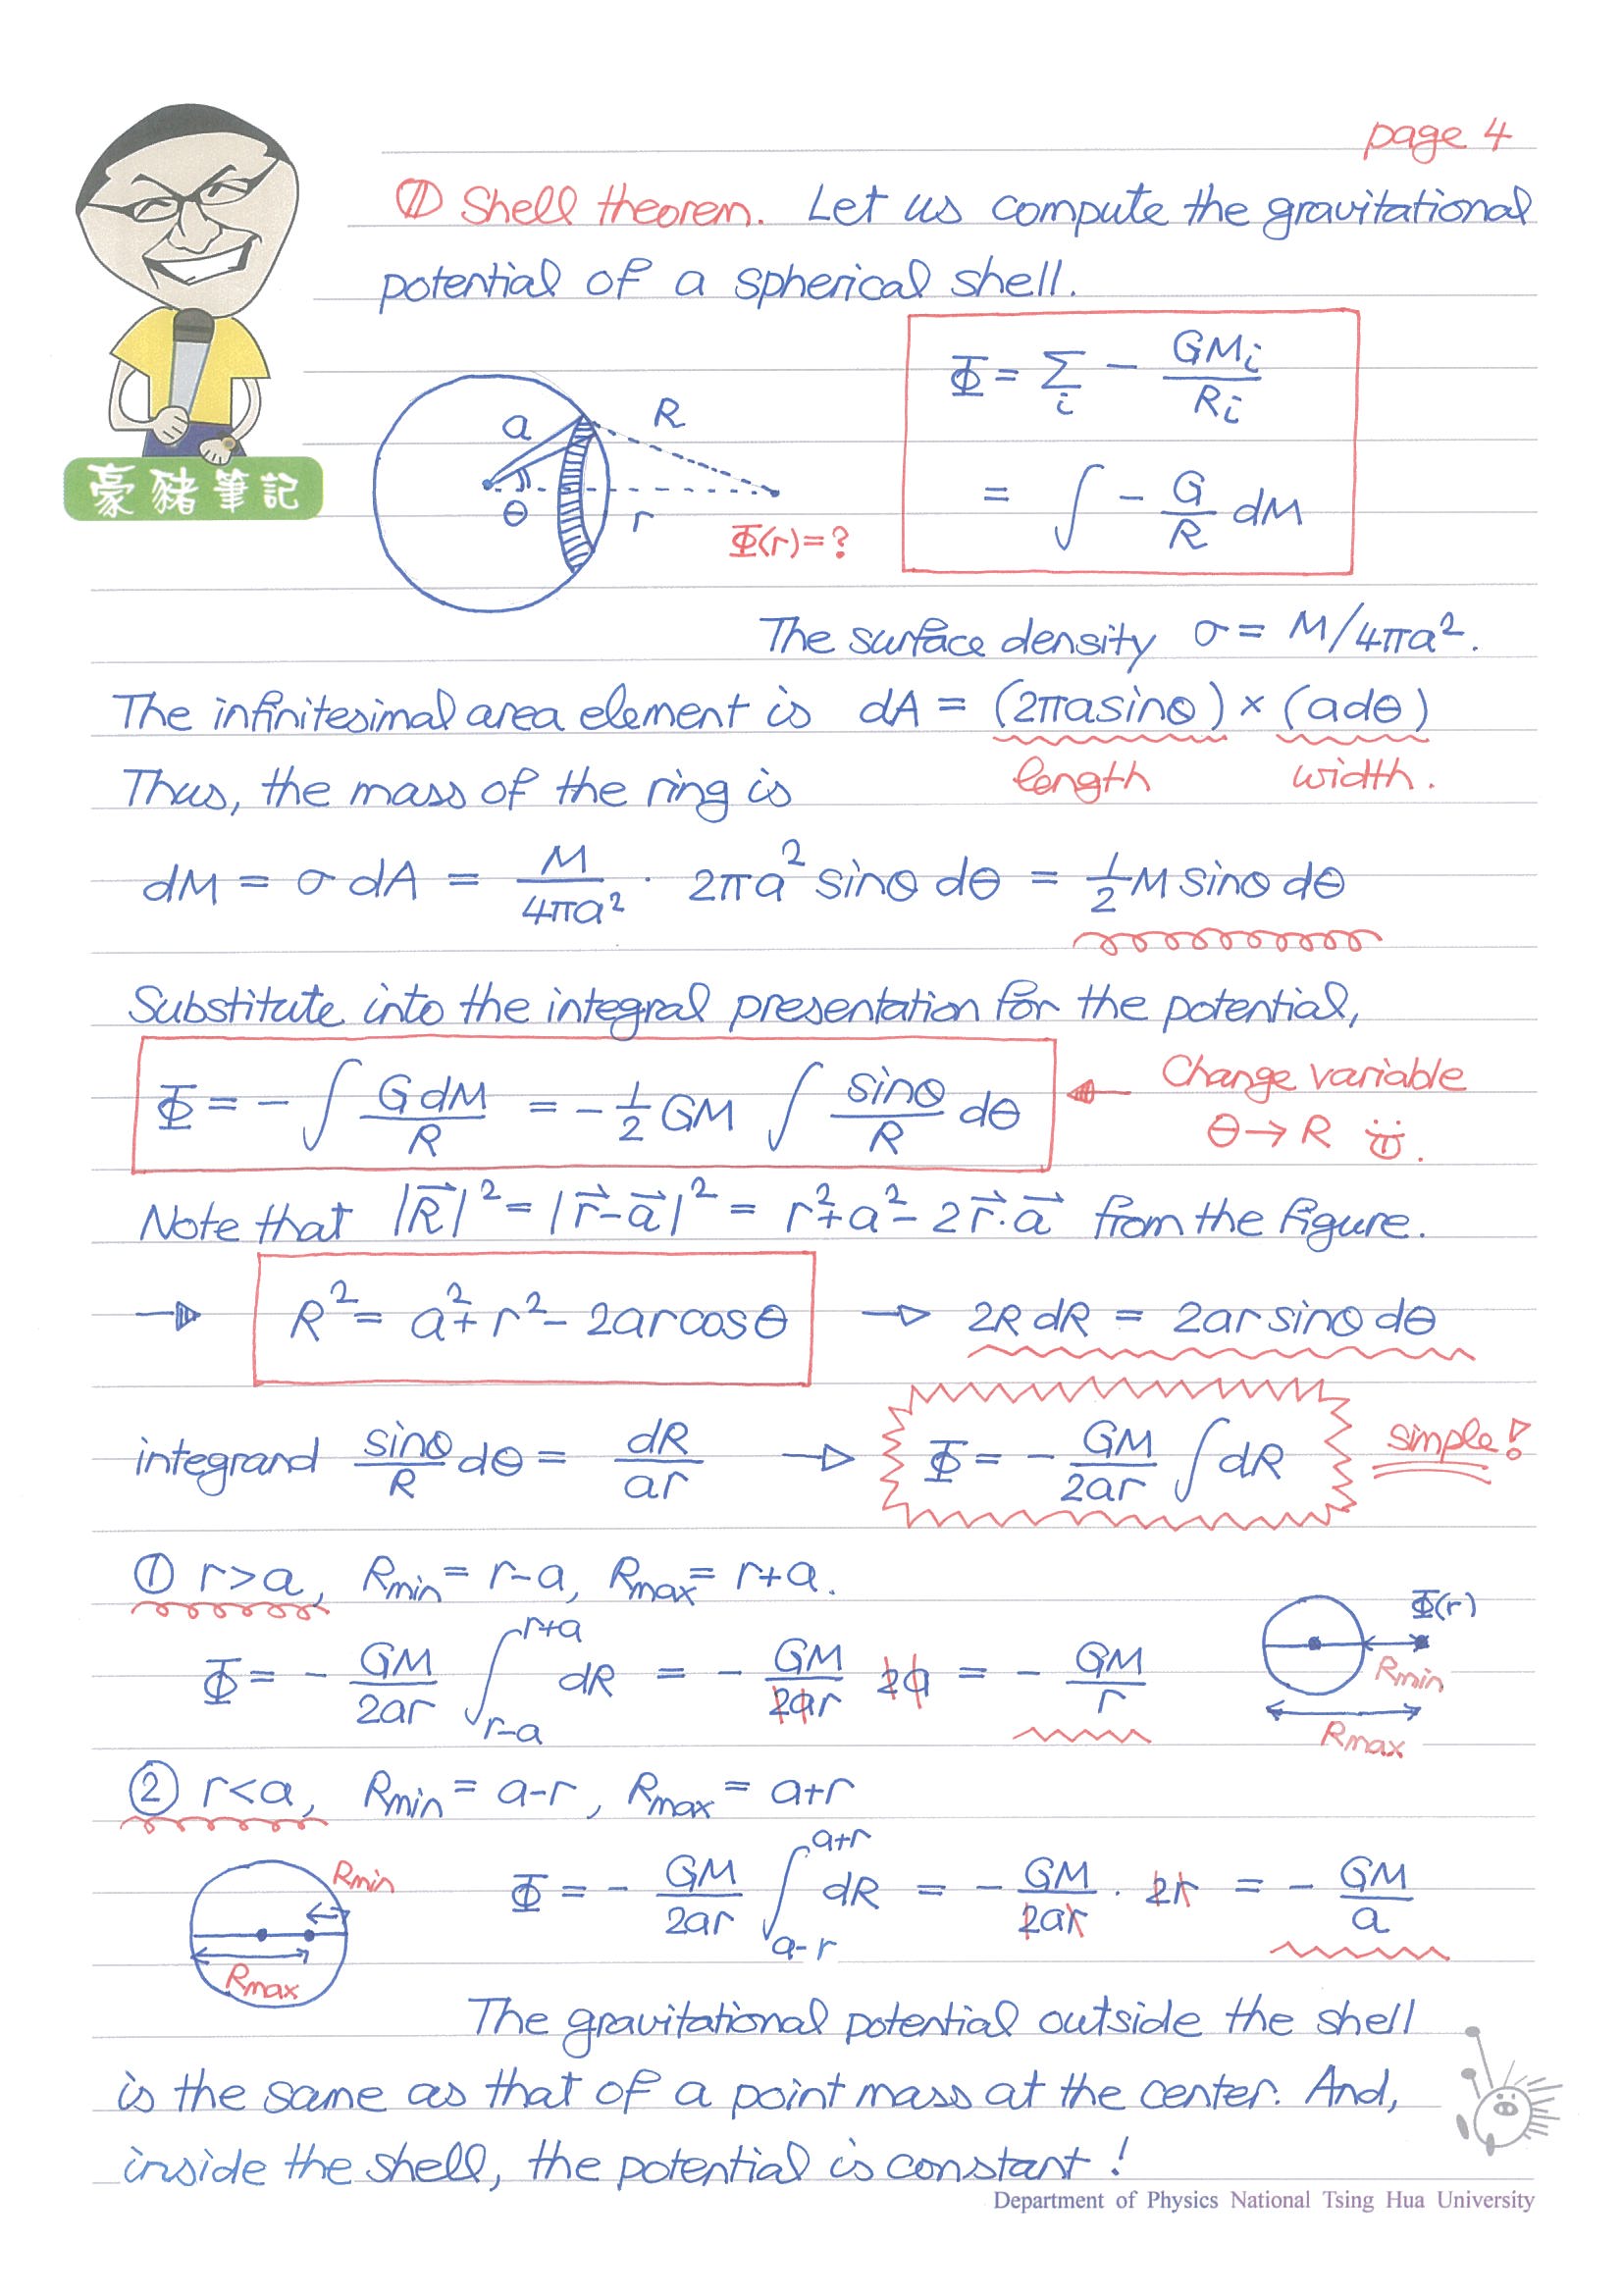 page 4
① Shell theorem. Let us compute the gravitational
potential of a spherical shell.
Φ = Σ_i - GM_i/R_i
= ∫ - G/R dM
a
R
θ
r
Φ(r)=?
豪豬筆記
The surface density σ = M/4πa².
The infinitesimal area element is dA = (2πasinθ) × (adθ)
length width.
Thus, the mass of the ring is
dM = σ dA = M/4πa² · 2πa² sinθ dθ = ½ M sinθ dθ
Substitute into the integral presentation for the potential,
Φ = - ∫ G dM/R = -½ GM ∫ sinθ/R dθ
Change variable
θ → R
Note that |R⃗|² = |r⃗-a⃗|² = r²+a²-2r⃗·a⃗ from the figure.
→ R² = a²+r²-2arcosθ → 2R dR = 2ar sinθ dθ
integrand sinθ/R dθ = dR/ar → Φ = - GM/2ar ∫ dR simple!
① r>a, Rmin = r-a, Rmax = r+a.
Φ = - GM/2ar ∫_{r-a}^{r+a} dR = - GM/2ar 2a = - GM/r
Φ(r)
Rmin
Rmax
② r<a, Rmin = a-r, Rmax = a+r
Rmin
Rmax
Φ = - GM/2ar ∫_{a-r}^{a+r} dR = - GM/2ar · 2r = - GM/a
The gravitational potential outside the shell
is the same as that of a point mass at the center. And,
inside the shell, the potential is constant!
Department of Physics National Tsing Hua University